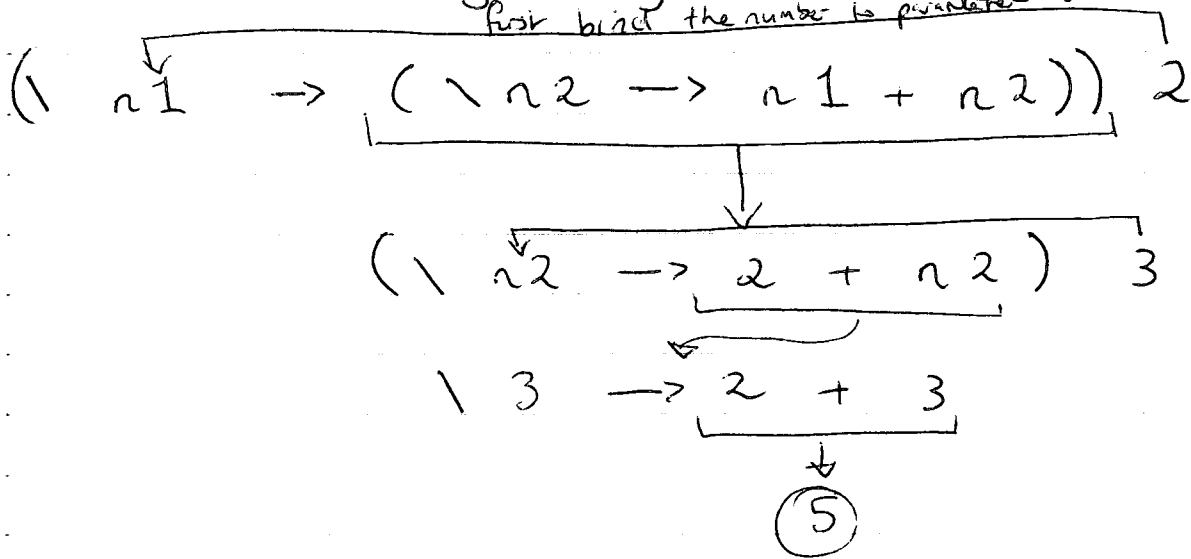 first bind the number to parameter
(\ n1 -> (\ n2 -> n1 + n2)) 2
(\ n2 -> 2 + n2) 3
\ 3 -> 2 + 3
5